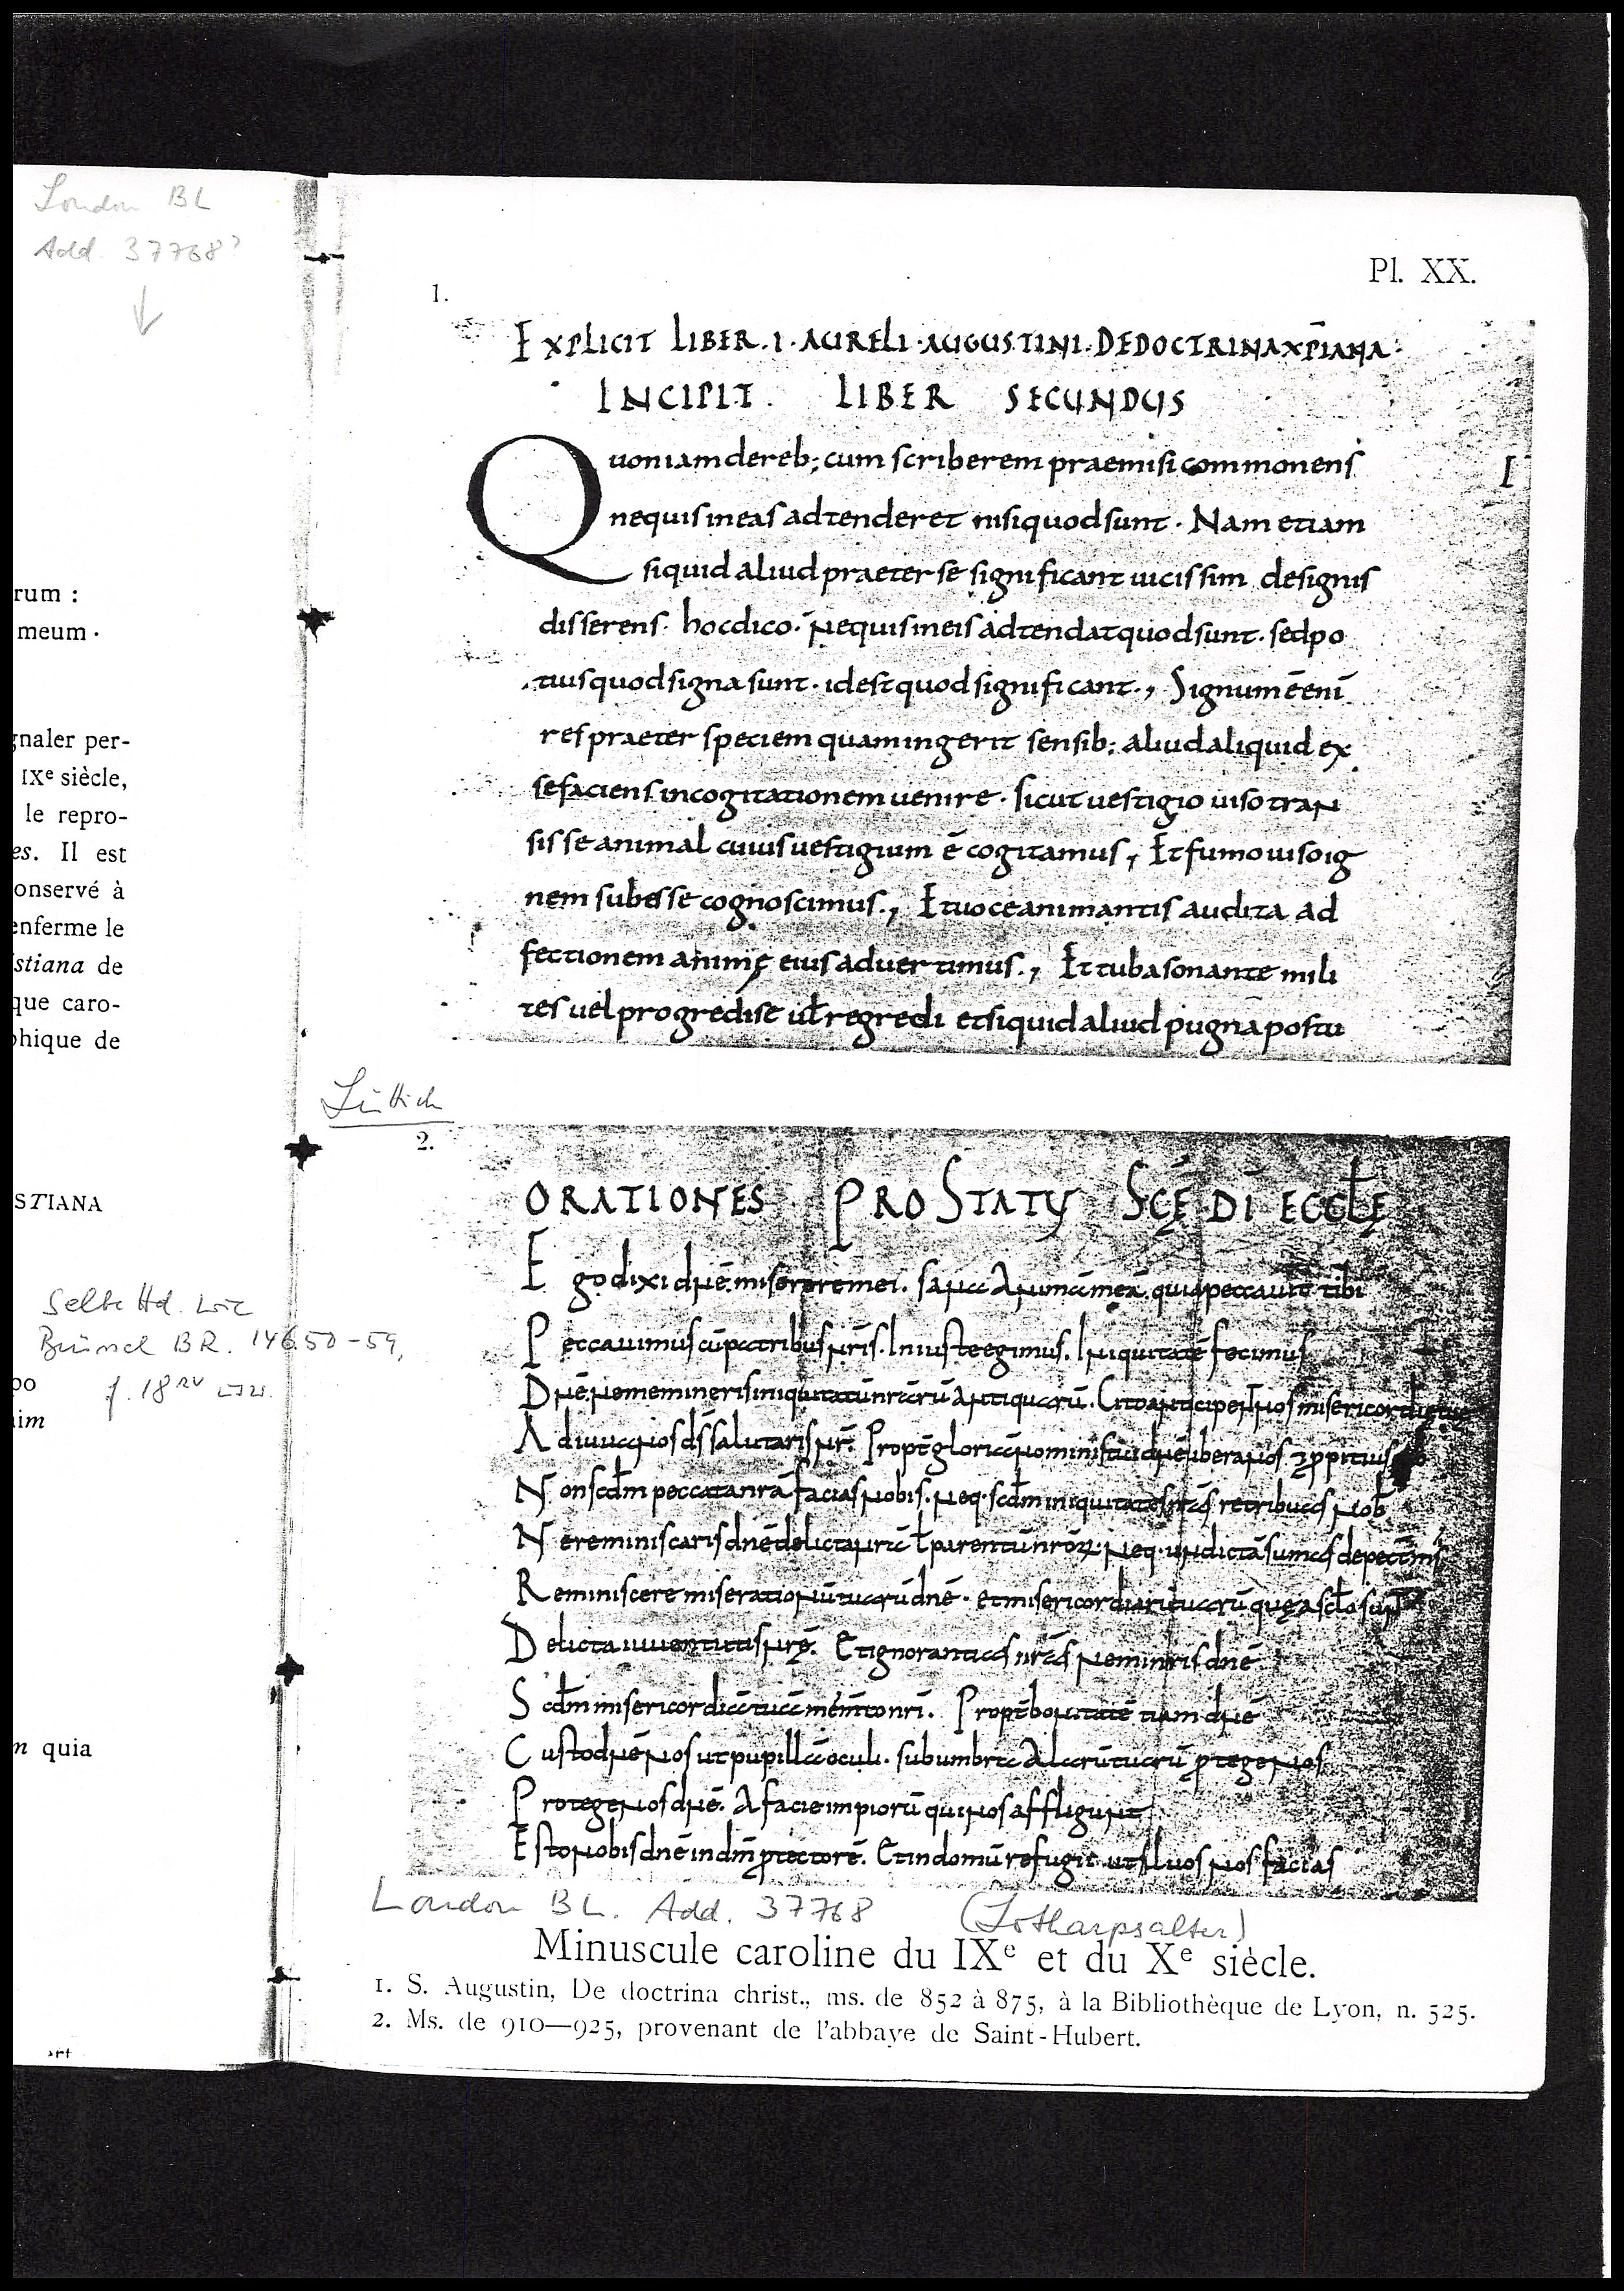 London BL
Add. 37768?
rum :
meum ·
gnaler per-
IXe siècle,
le repro-
es. Il est
onservé à
enferme le
stiana de
que caro-
phique de
STIANA
Selbe Hd. wie
Brüssel BR. 14650-59,
f. 18rv
po
im
n quia
Pl. XX.
1.
EXPLICIT LIBER . I · AURELI · AUGUSTINI · DEDOCTRINAXP̄IANA ·
INCIPIT LIBER SECUNDUS
Quoniamdereb; cum scriberem praemisi commonens
nequisineas adtenderet nisiquodsunt · Nam etiam
siquid aliud praeter se significant uicissim designis
disserens · hocdico · Nequisineis adtendatquodsunt · sedpo
tiusquodsigna sunt · idestquodsignificant ·, Signum ē enī
res praeter speciem quamingerit sensib; aliudaliquid ex
sefaciens incogitationem uenire · sicut uestigio uiso tran
sisse animal cuius uestigium ē cogitamus, Et fumo uiso ig
nem subesse cognoscimus ·, Etuoceanimantis audita ad
fectionem animę eius aduertimus ·, Et tuba sonante mili
tes uel progredise ul̄ regredi etsiquid aliud pugna postu
I
Lüttich
2.
ORATIONES PRO STATU SCĒ DĪ ECCLĒ
Ego dixi dn̄e miserere mei. sana animā meā quia peccaui tibi
Peccauimus cū patribus nr̄is. Iniuste egimus. Iniquitatē fecimus
Dn̄e ne memineris iniquitatū nr̄arū antiquarū. Cito anticipent nos misericordię tuę
Adiuua nos ds̄ salutaris nr̄. Propt̄ gloriā nominis tui dn̄e libera nos
Non scd̄m peccata nr̄a facias nobis. neq· scd̄m iniquitates nr̄as retribuas nob̄
Ne reminiscaris dn̄e delicta nr̄a ł parentū nr̄oꝝ. neq· uindictā sumas de pecc̄
Reminiscere miserationū tuarū dn̄e · et misericordiarū tuarū quę a sc̄lo sunt
Delicta iuuentutis nr̄ę. Et ignorantias nr̄as ne mineris dn̄e
Scd̄m misericordiā tuā mem̄to nr̄i. Propt̄ bonitatē tuam dn̄e
Custodi nos ut pupillā oculi. sub umbra alarū tuarū protege nos
Protege nos dn̄e. A facie impiorū qui nos affligunt
Esto nobis dn̄e in dm̄ protectorē. Et in domū refugii ut saluos nos facias
London BL. Add. 37768 (Lotharpsalter)
Minuscule caroline du IXe et du Xe siècle.
1. S. Augustin, De doctrina christ., ms. de 852 à 875, à la Bibliothèque de Lyon, n. 525.
2. Ms. de 910—925, provenant de l'abbaye de Saint-Hubert.